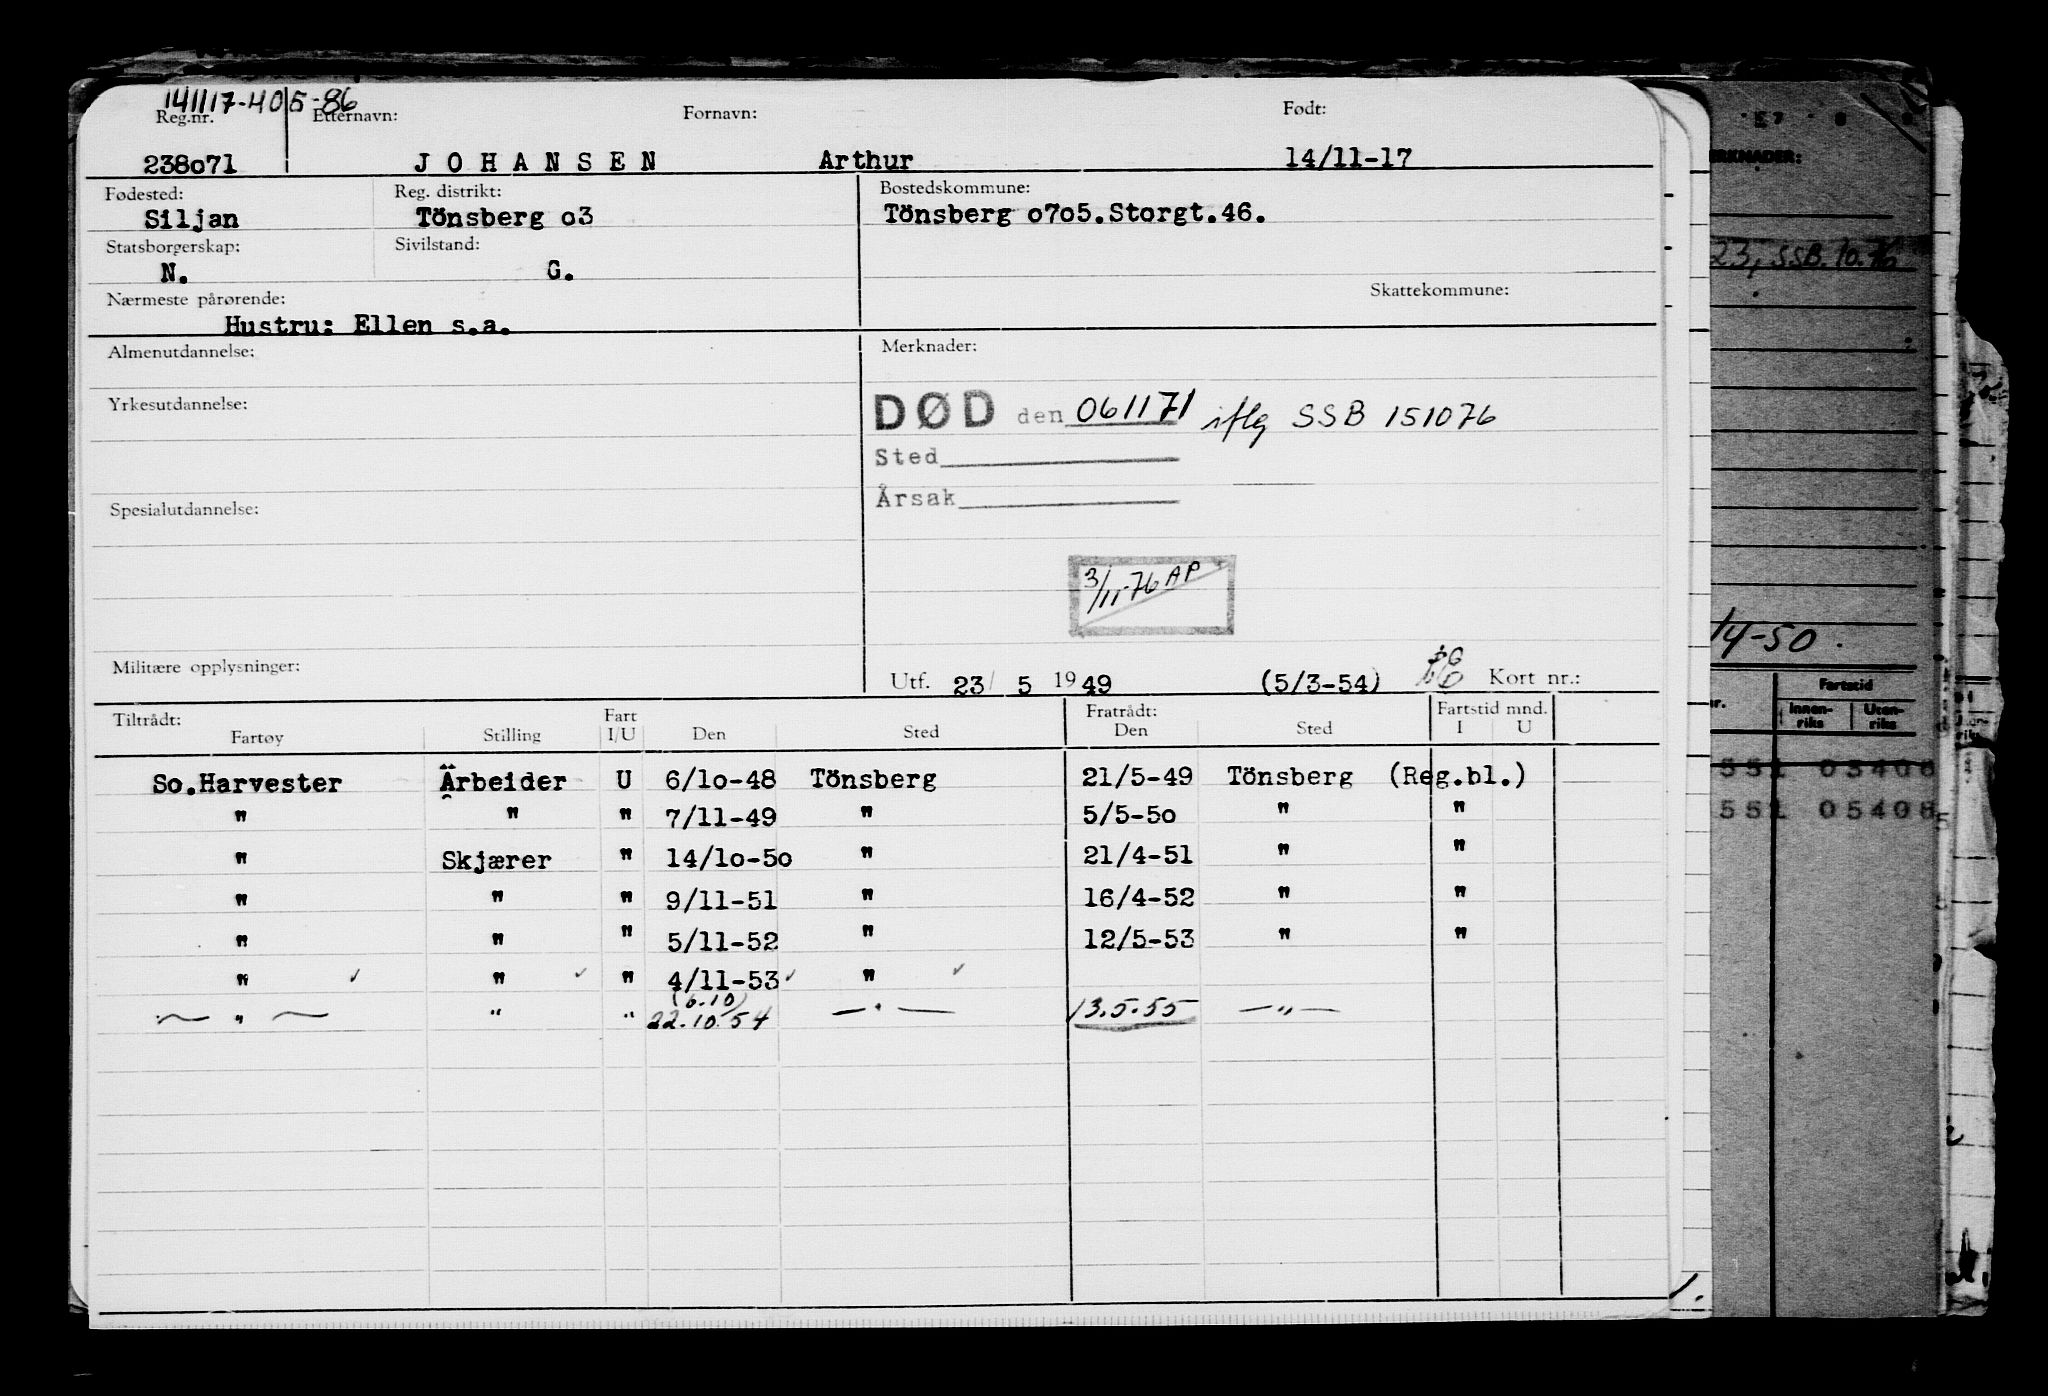 141117-405-86
Reg.nr. Etternavn: Fornavn: Født:
238o71 J O H A N S E N Arthur 14/11-17
Fødested: Reg. distrikt: Bostedskommune:
Siljan Tönsberg o3 Tönsberg o7o5.Storgt.46.
Statsborgerskap: Sivilstand:
N. G.
Nærmeste pårørende: Skattekommune:
Hustru: Ellen s.a.
Almenutdannelse: Merknader:
Yrkesutdannelse:
DØD den 061171 iflg SSB 151076
Sted
Årsak
Spesialutdannelse:
3/11-76 AP
Militære opplysninger:
Utf. 23/ 5 1949 (5/3-54) Kort nr.:
Tiltrådt: Fart Fratrådt: Fartstid mnd.
Fartøy Stilling I/U Den Sted Den Sted I U
So.Harvester Arbeider U 6/1o-48 Tönsberg 21/5-49 Tönsberg (Reg.bl.)
" " " 7/11-49 " 5/5-5o " "
" Skjærer " 14/1o-5o " 21/4-51 " "
" " " 9/11-51 " 16/4-52 " "
" " " 5/11-52 " 12/5-53 " "
" ✓ " ✓ " 4/11-53 ✓ " ✓
(6.10)
— " — " " 22.10.54 — " — 13.5.55 — " —
ERKNADER:
23, SSB. 10.76
14-50.
Fartstid
Innen-riks Uten-riks
551 03408
551 05408